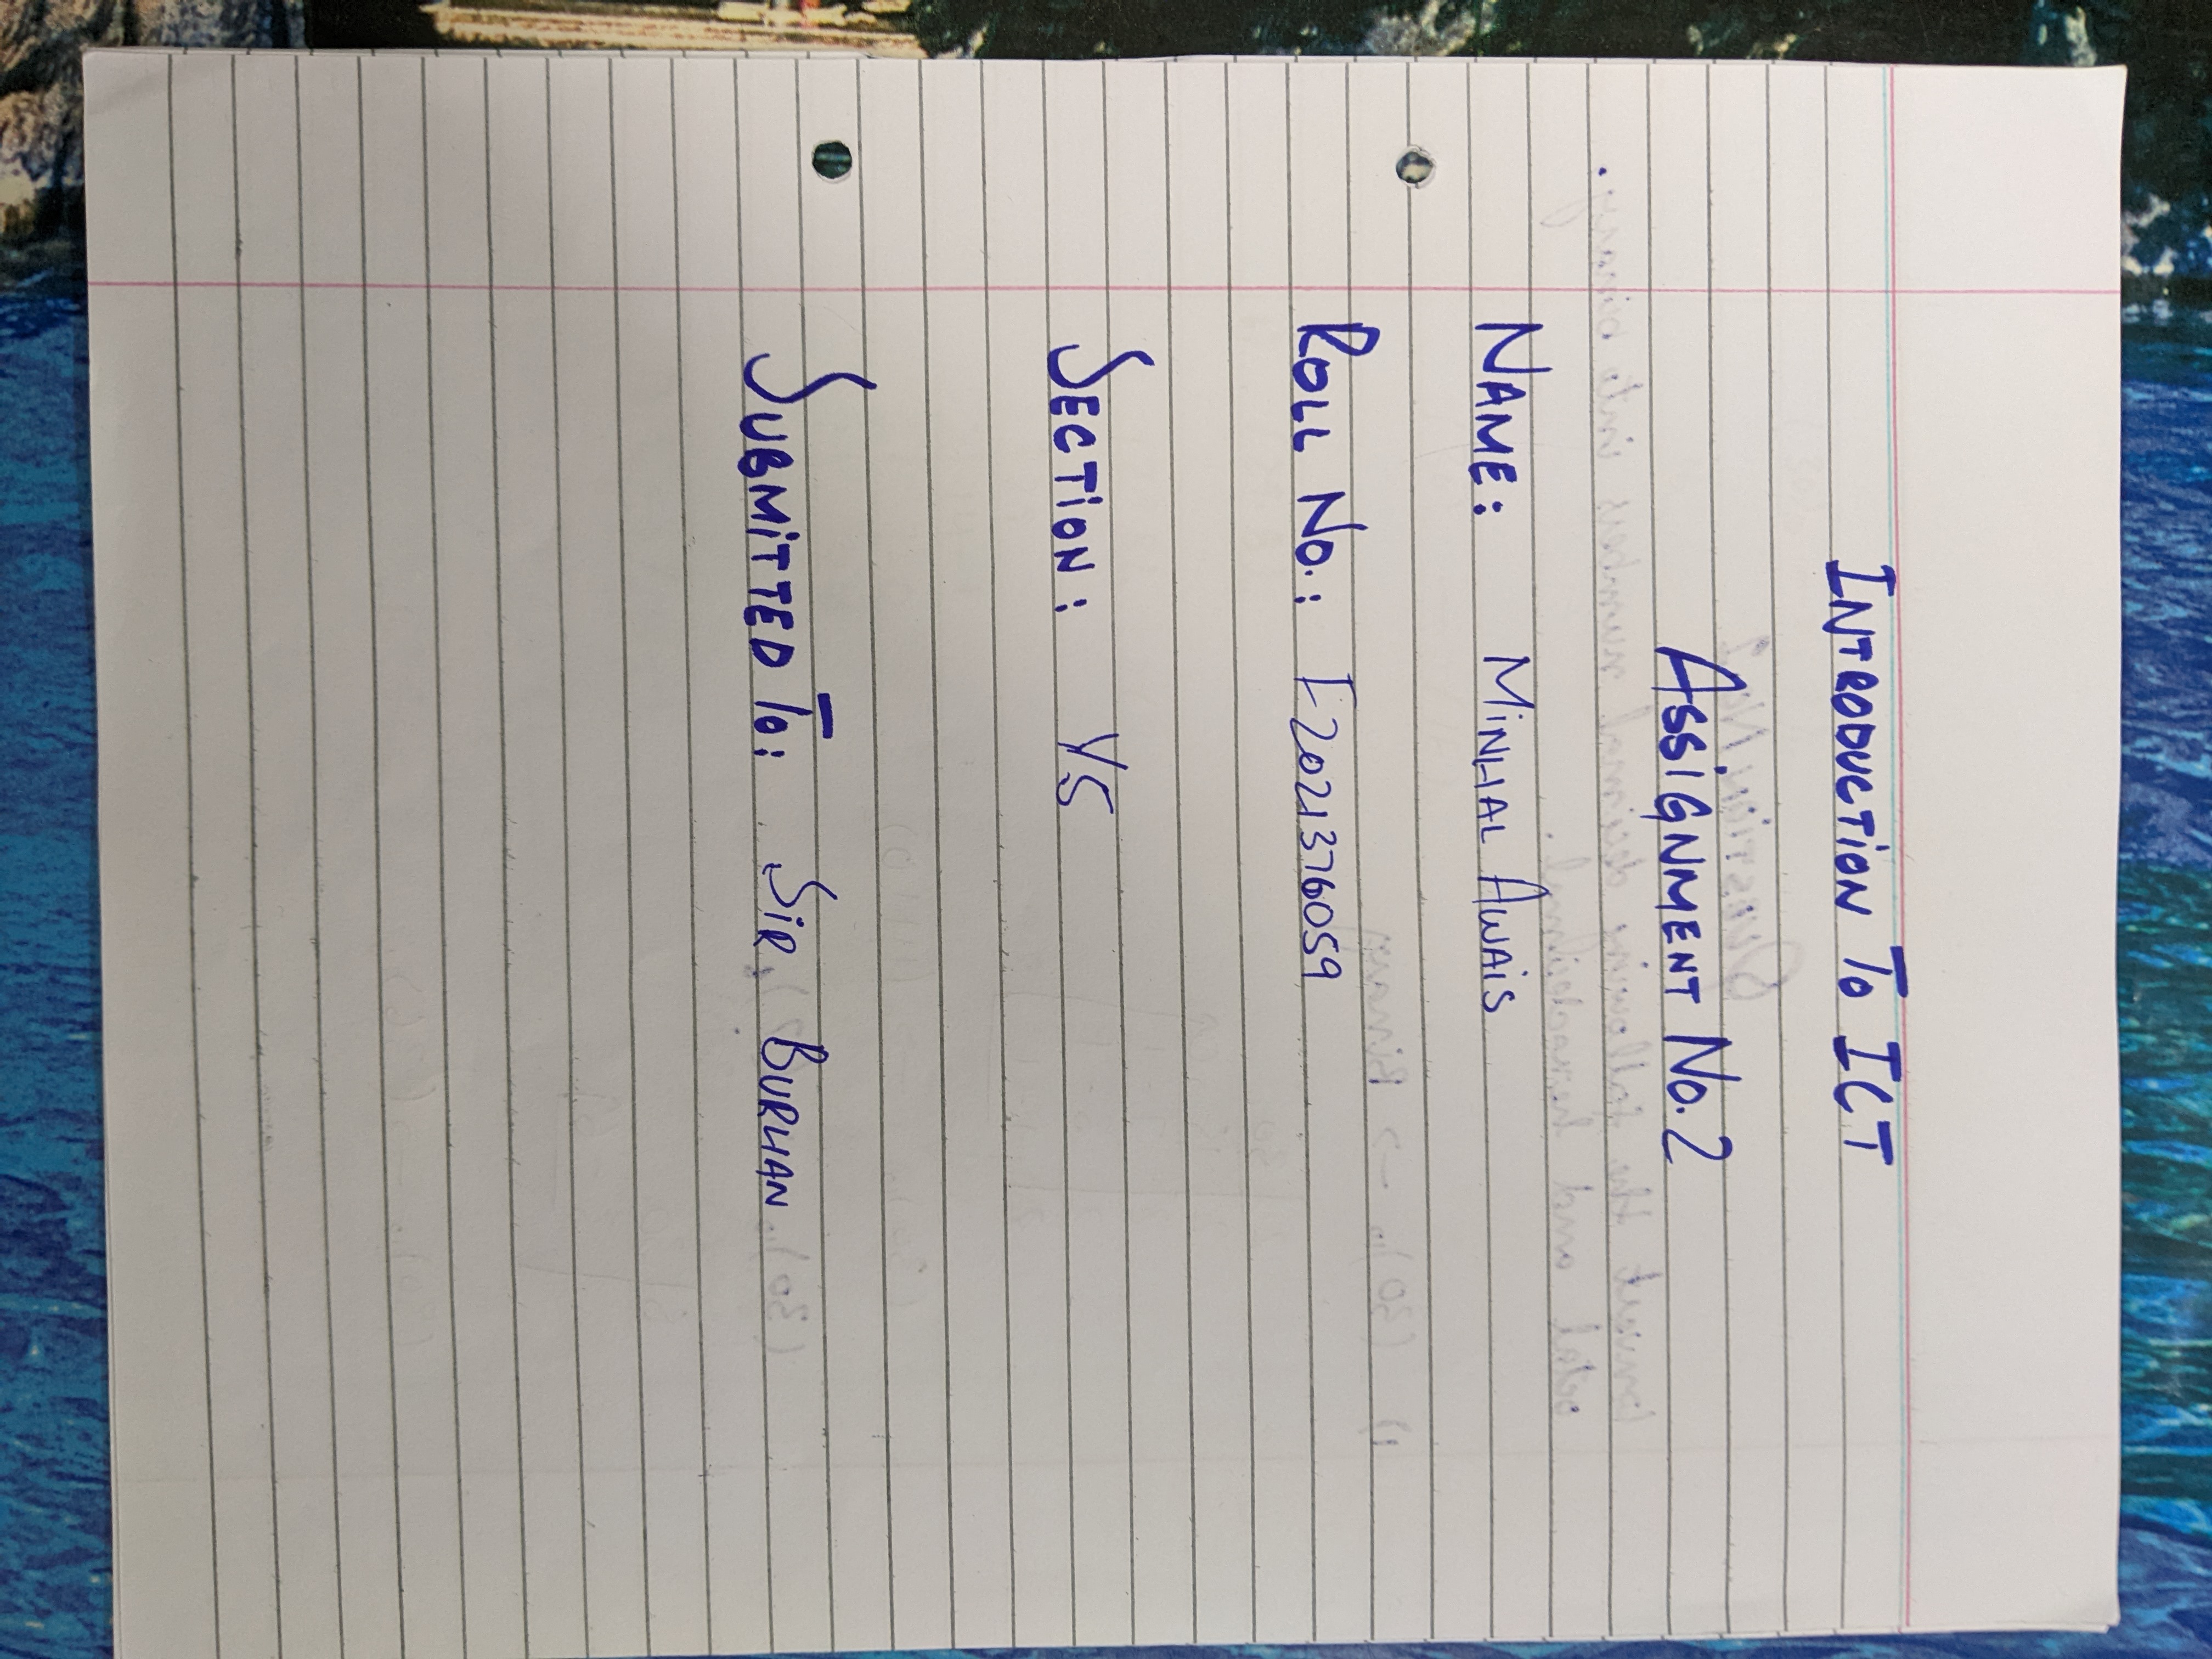 INTRODUCTION TO ICT
ASSIGNMENT NO. 2
NAME: MINHAL AWAIS
ROLL NO.: F2021376059
SECTION: Y5
SUBMITTED TO: SIR BURHAN